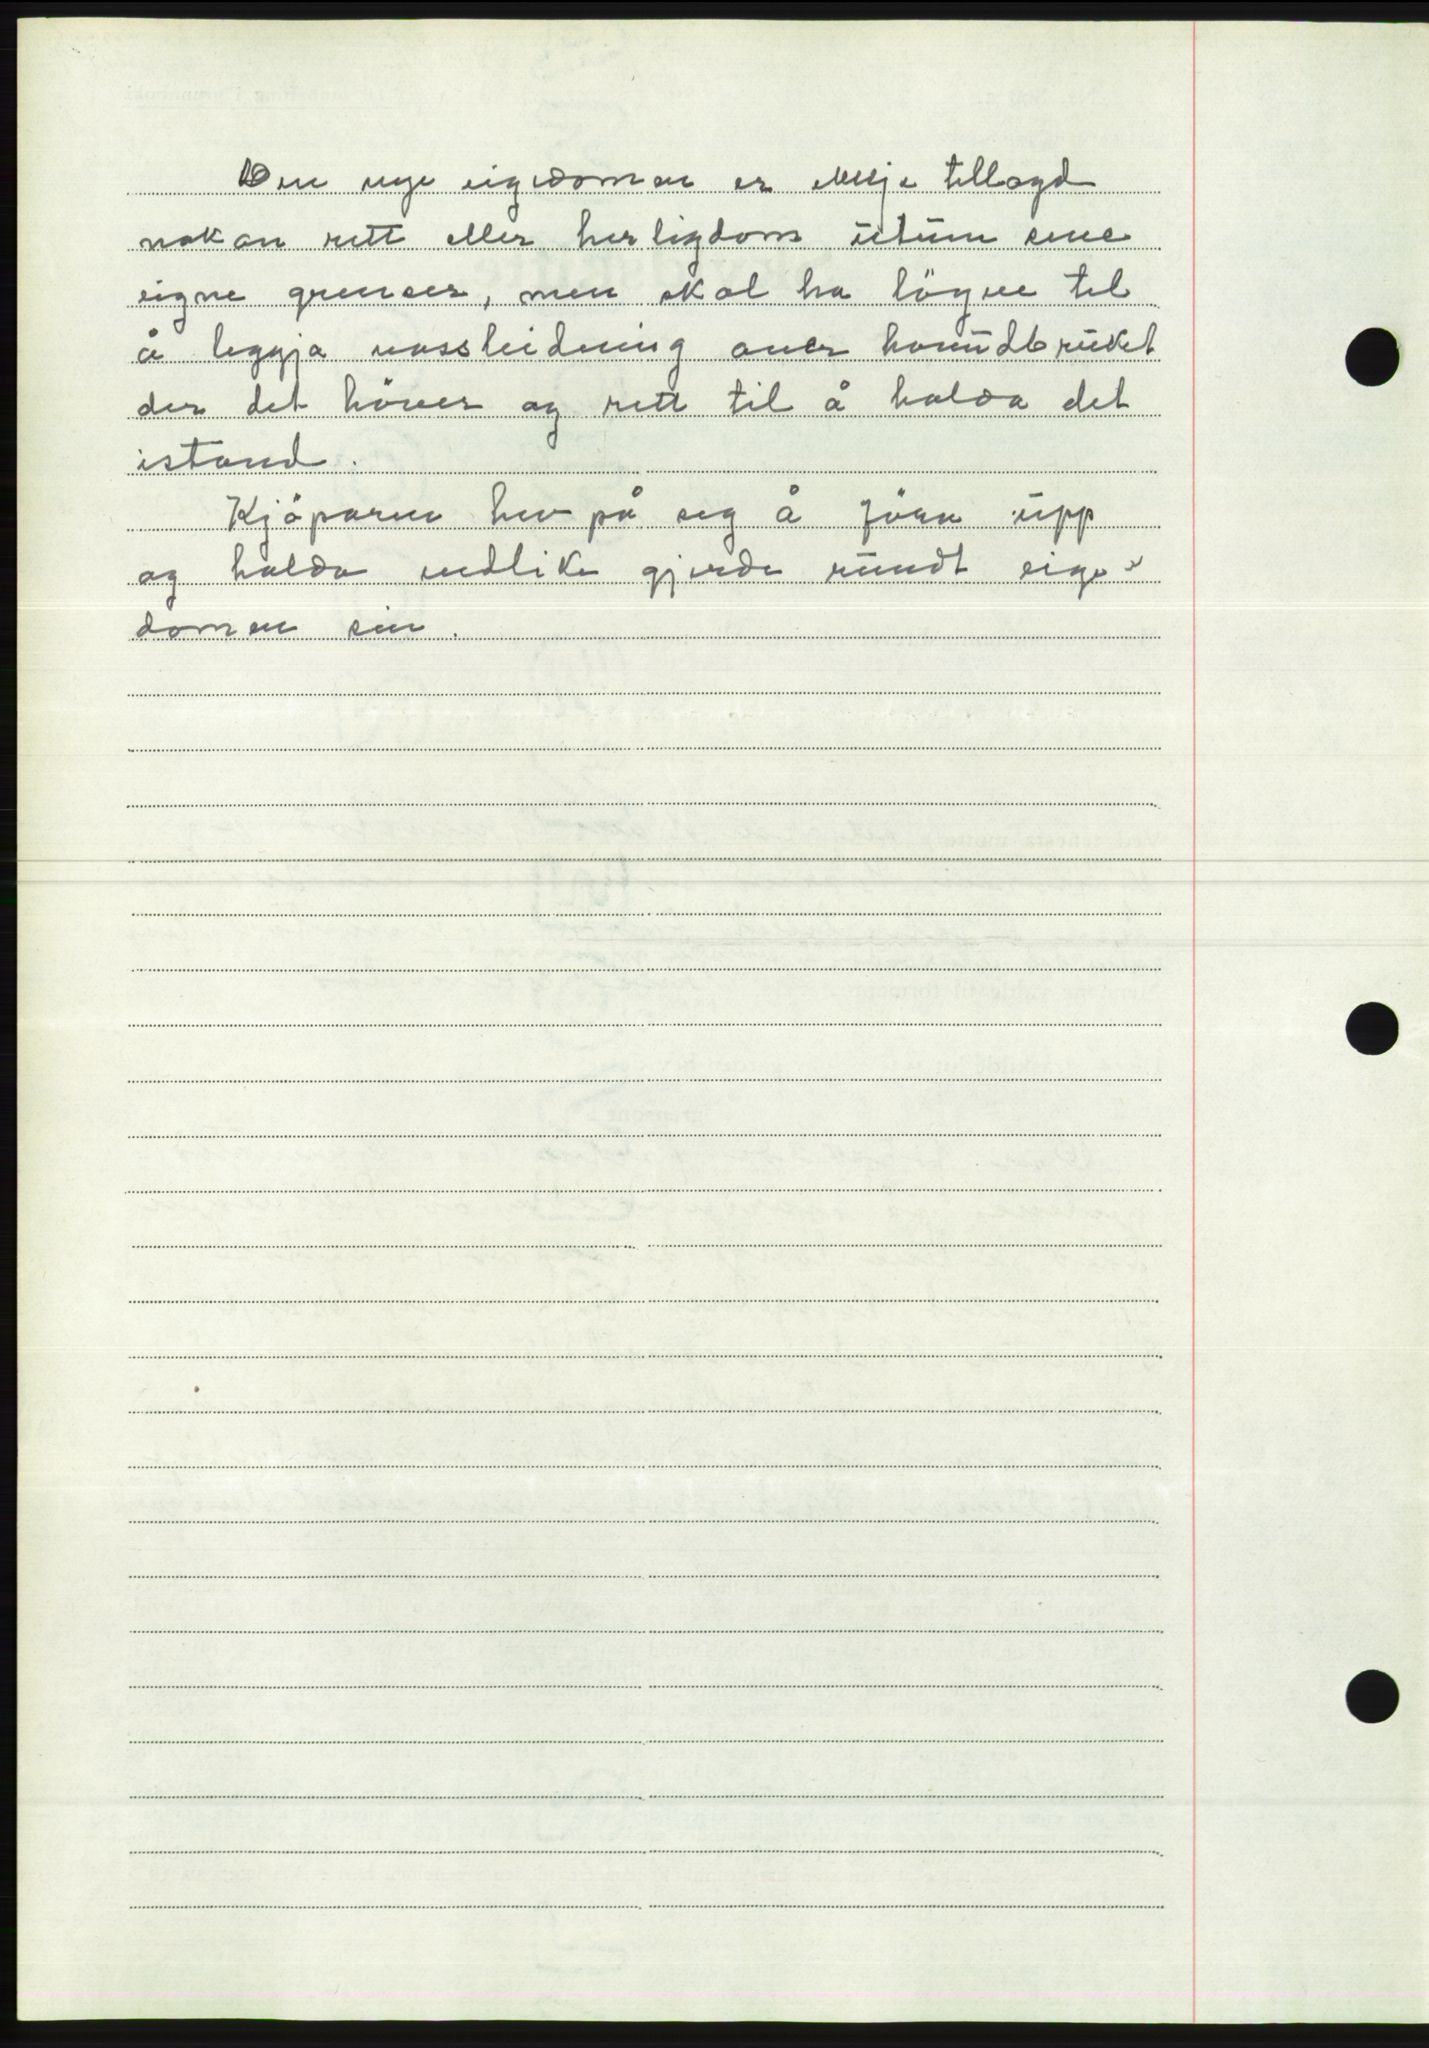 Den nye eigedomen er ikkje tillagd
nokon rett eller herligdom utum sine
eigne grenser, men skal ha lögve til
å leggja vassleidning over hovudbruket
der det höver og rett til å halda det
istand.
Kjöparen hev på seg å föra upp
og halda vedlike gjerde rundt eige-
domen sin.